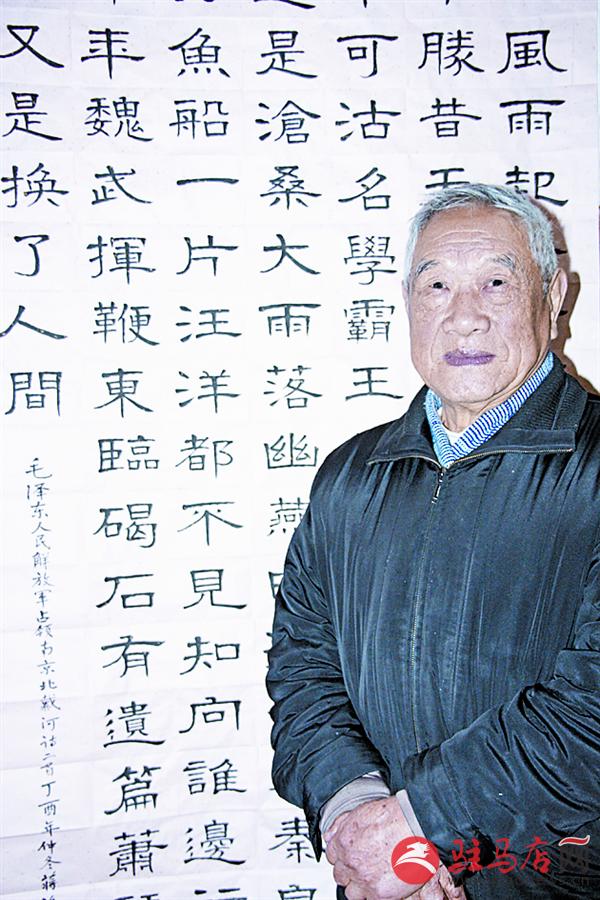 風雨起
勝昔天
可沽名學霸王
是滄桑大雨落幽燕 秦皇
魚船一片汪洋都不見知向誰邊
年魏武揮鞭東臨碣石有遺篇蕭
又是換了人間
毛泽东人民解放军占领南京北戴河诗二首丁酉年仲冬蒋
驻马店网